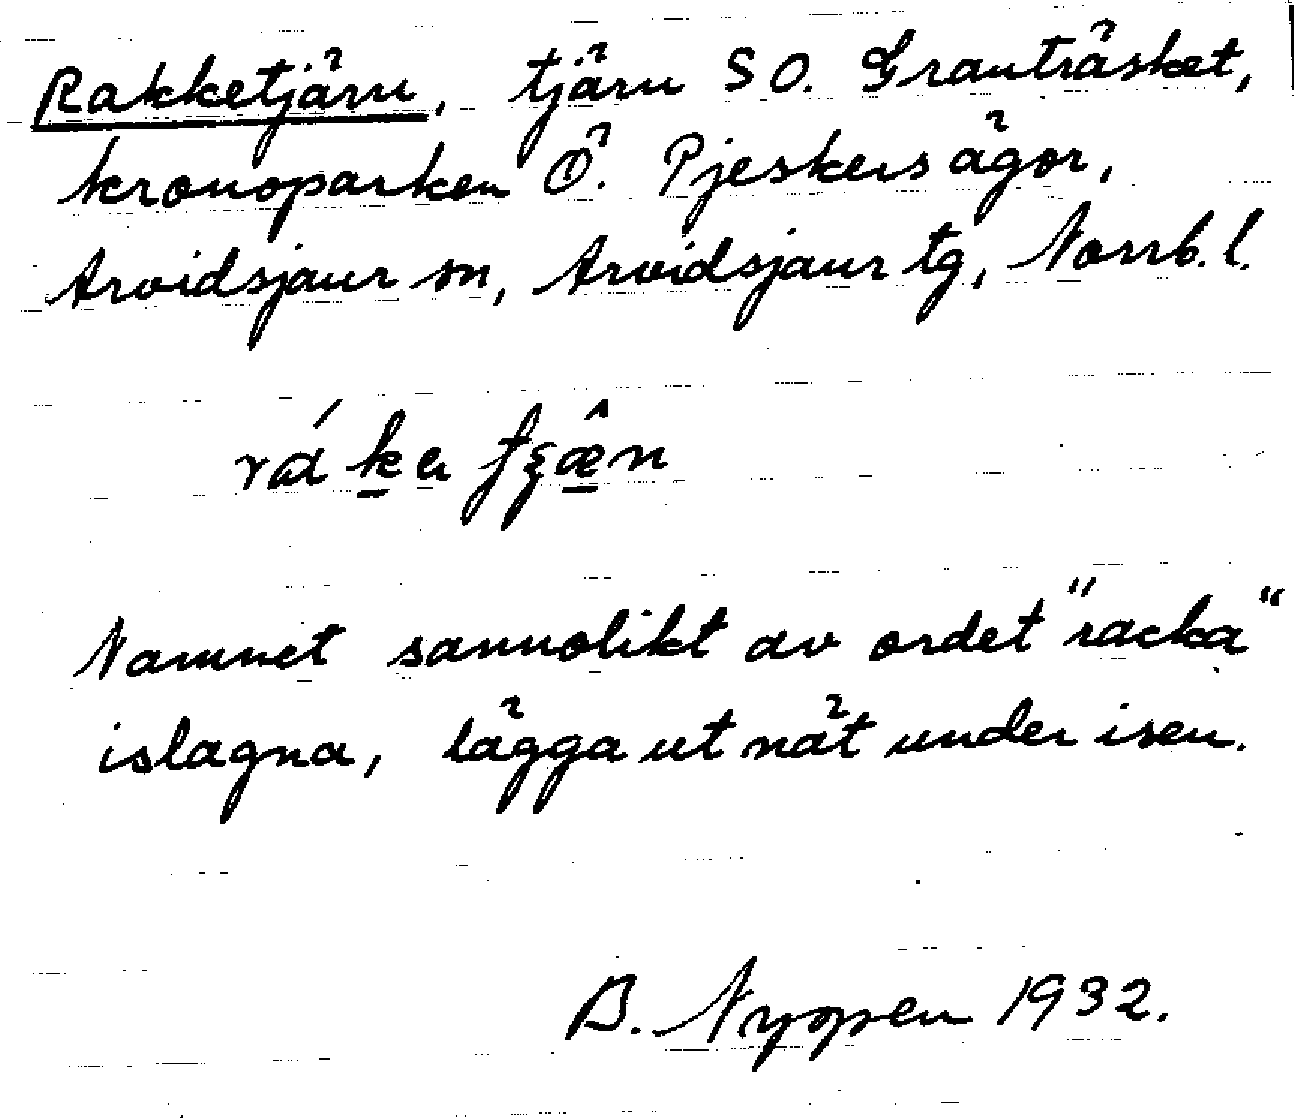 Rakketjärn, tjärn SO. Granträsket,
kronoparken Ö. Pjeskers ägor,
Arvidsjaur sn, Arvidsjaur tg, Norrb. l.
Namnet sannolikt av ordet "racka"
islagna, lägga ut nät under isen.
B. 1932.